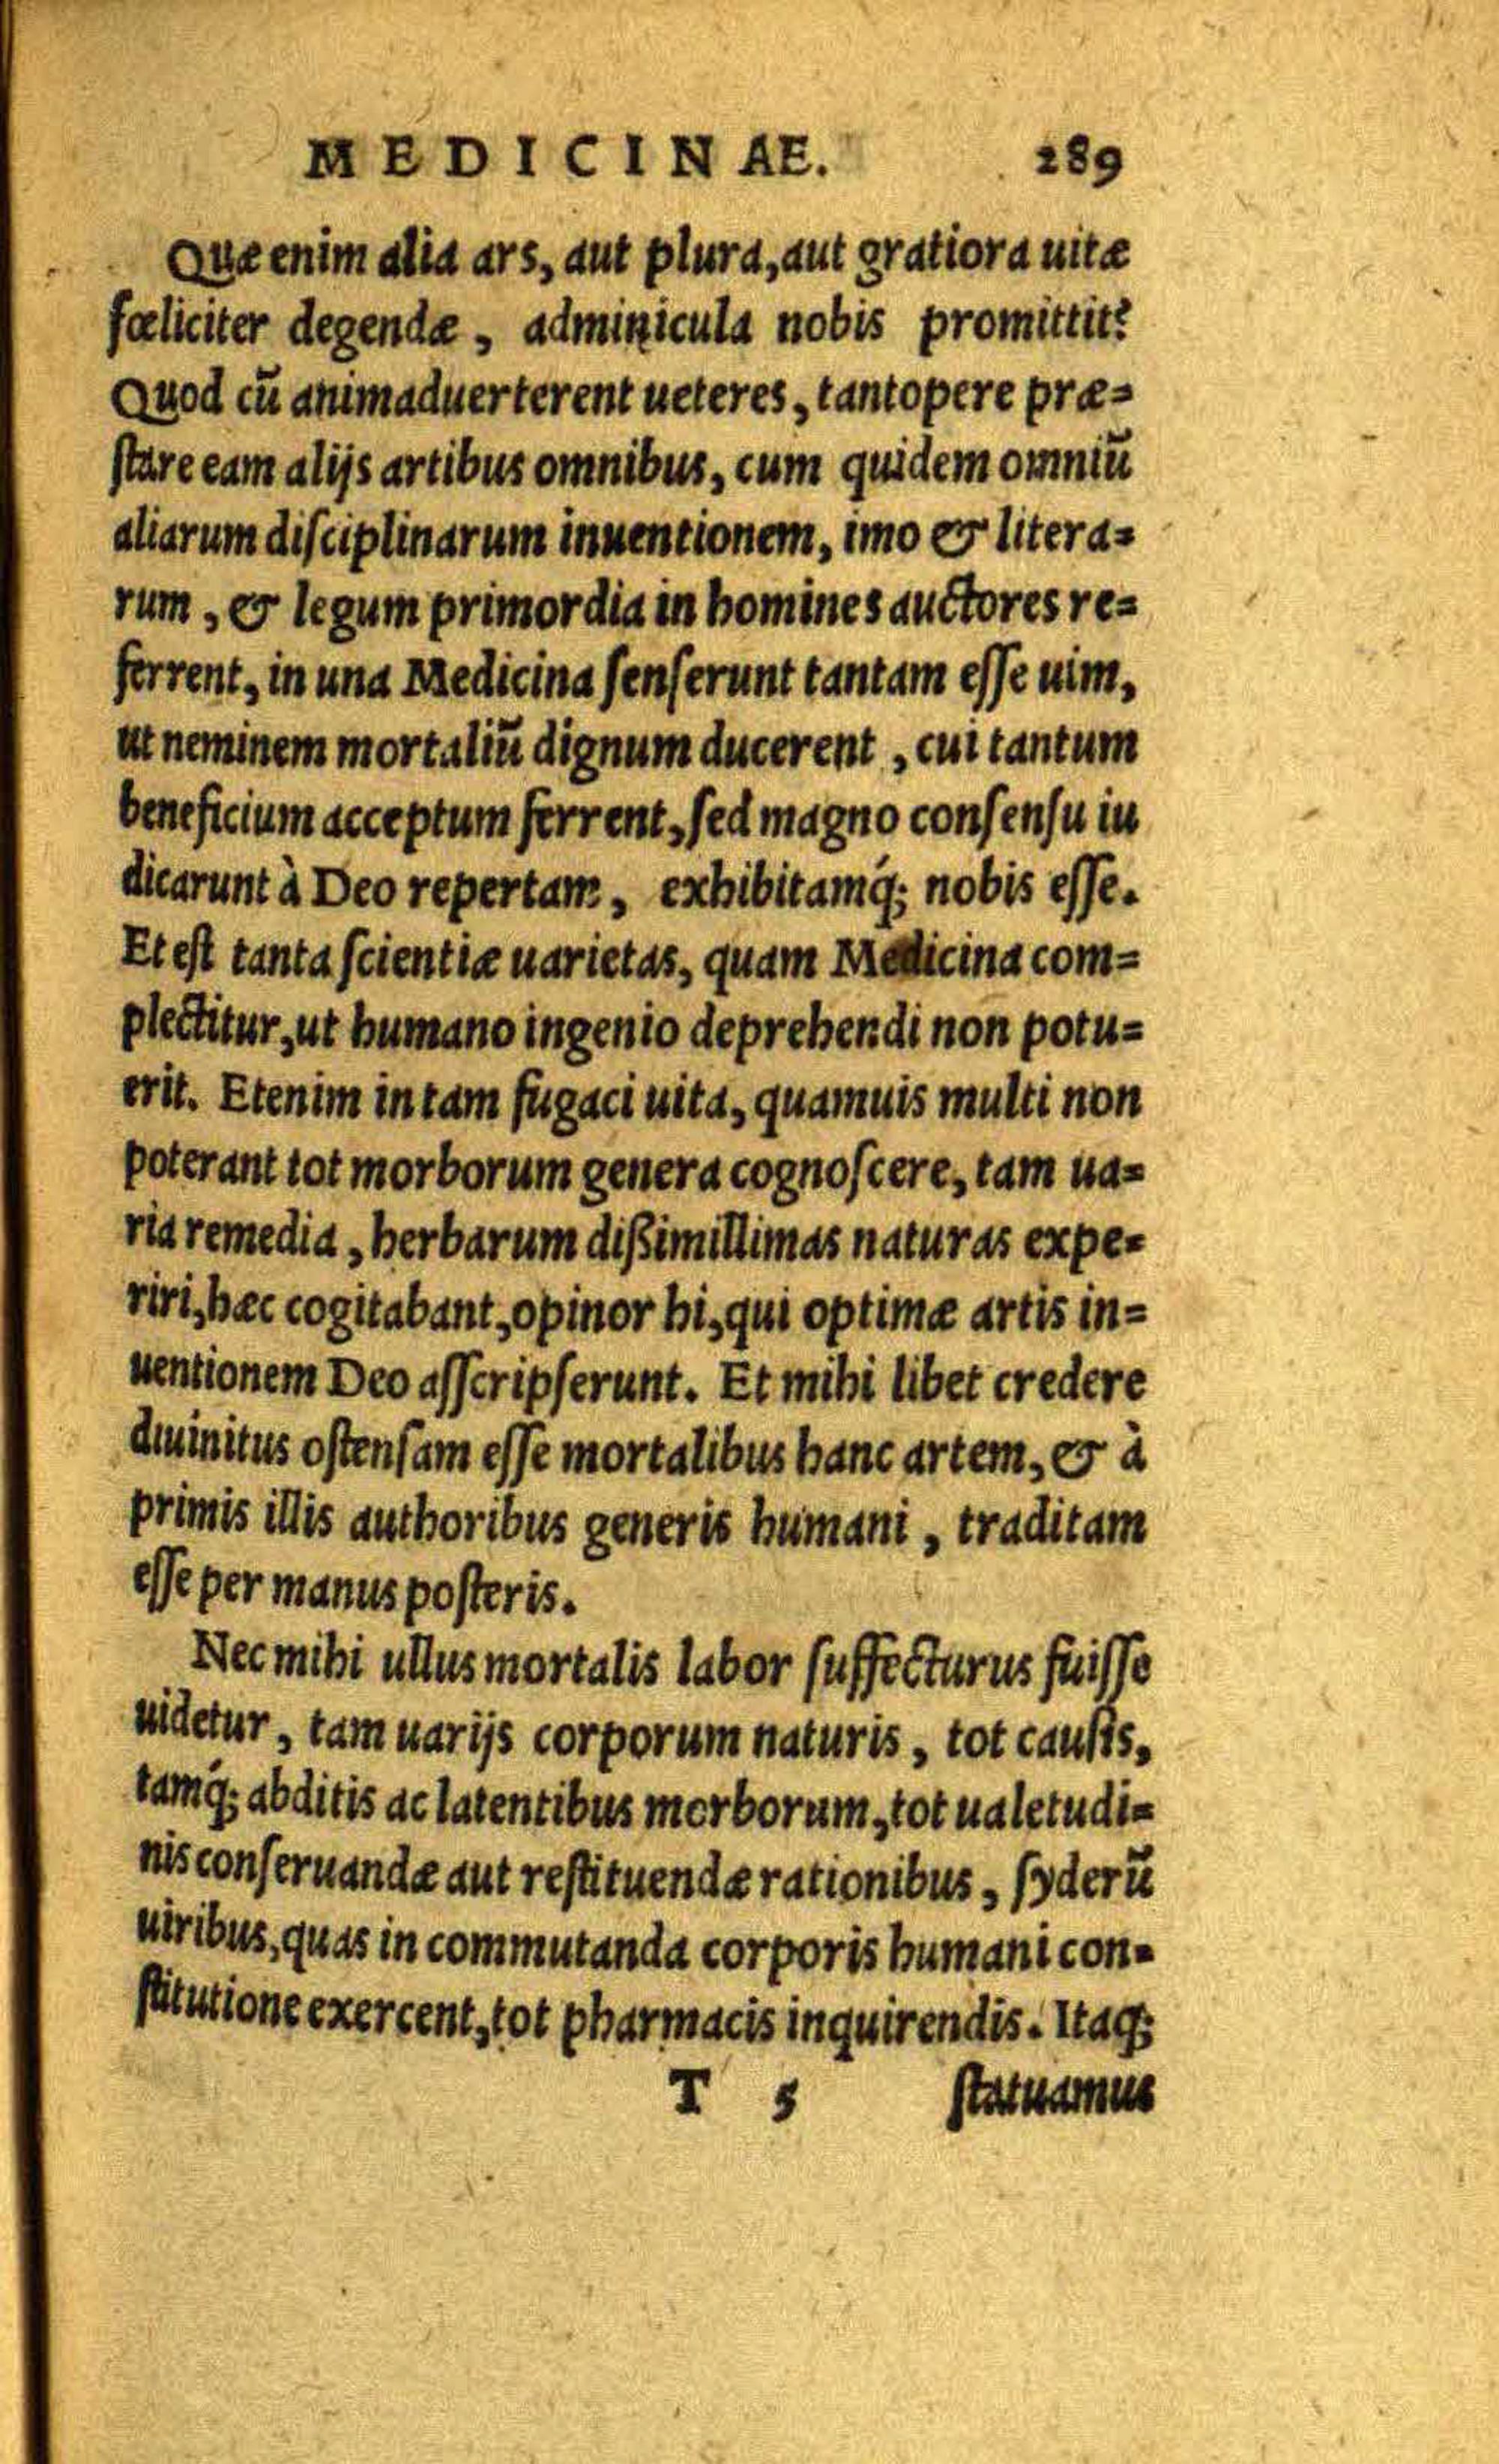 MEDICINAE. 289
Quæ enim alia ars, aut plura, aut gratiora uitæ
fœliciter degendæ, adminicula nobis promittit?
Quod cū animaduerterent ueteres, tantopere præ=
ſtare eam alijs artibus omnibus, cum quidem omniū
aliarum diſciplinarum inuentionem, imo & litera=
rum, & legum primordia in homines auctores re=
ferrent, in una Medicina ſenſerunt tantam eſſe uim,
ut neminem mortaliū dignum ducerent, cui tantum
beneficium acceptum ferrent, ſed magno conſenſu iu
dicarunt à Deo repertam, exhibitamq́; nobis eſſe.
Et eſt tanta ſcientiæ uarietas, quam Medicina com=
plectitur, ut humano ingenio deprehendi non potu=
erit. Etenim in tam fugaci uita, quamuis multi non
poterant tot morborum genera cognoſcere, tam ua=
ria remedia, herbarum dißimillimas naturas expe=
riri, hæc cogitabant, opinor hi, qui optimæ artis in=
uentionem Deo aſſcripſerunt. Et mihi libet credere
diuinitus oſtenſam eſſe mortalibus hanc artem, & à
primis illis authoribus generis humani, traditam
eſſe per manus poſteris.
Nec mihi ullus mortalis labor ſuffecturus fuiſſe
uidetur, tam uarijs corporum naturis, tot cauſis,
tamq́; abditis ac latentibus morborum, tot ualetudi=
nis conſeruandæ aut reſtituendæ rationibus, ſyderū
uiribus, quas in commutanda corporis humani con=
ſtitutione exercent, tot pharmacis inquirendis. Itaq;
T 5 ſtatuamus